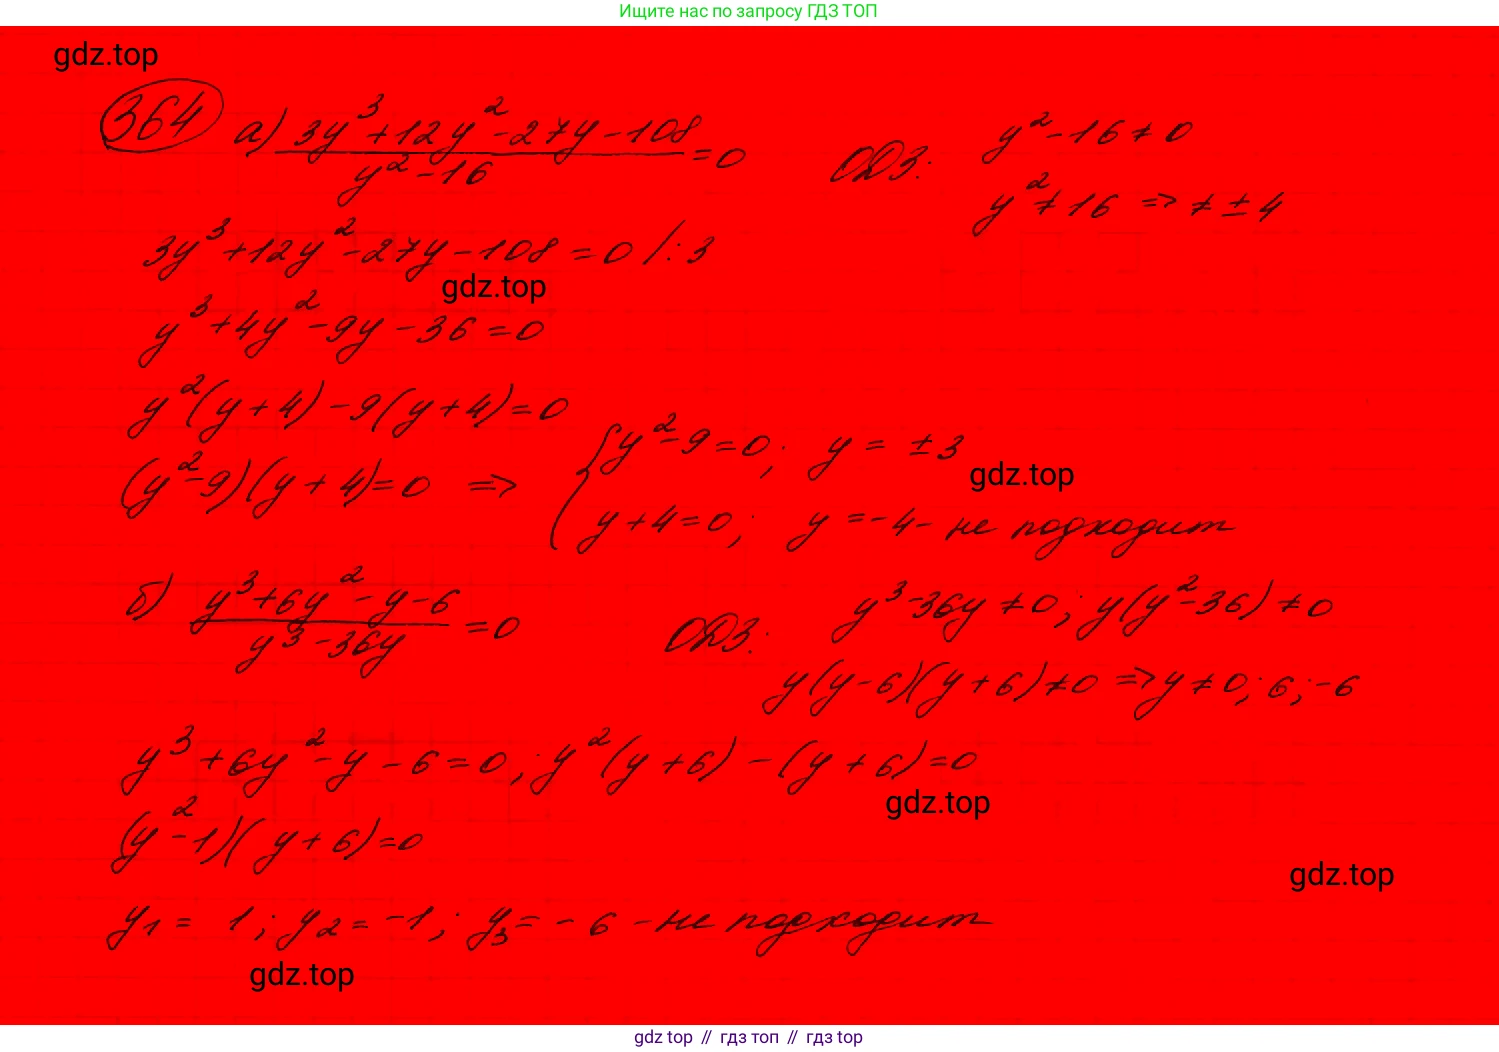 Ищите нас по запросу ГДЗ ТОП
gdz.top
364 а) (3y³+12y²-27y-108)/(y²-16) =0 ОДЗ: y²-16≠0
y²≠16 => ≠±4
3y³+12y²-27y-108=0 /:3
gdz.top
y³+4y²-9y-36=0
y²(y+4)-9(y+4)=0
(y²-9)(y+4)=0 => { y²-9=0; y=±3
gdz.top
y+4=0; y=-4- не подходит
б) (y³+6y²-y-6)/(y³-36y) =0 ОДЗ: y³-36y≠0; y(y²-36)≠0
y(y-6)(y+6)≠0 => y≠0; 6; -6
y³+6y²-y-6=0; y²(y+6)-(y+6)=0
gdz.top
(y²-1)(y+6)=0
gdz.top
y₁= 1; y₂=-1; y₃=-6 -не подходит
gdz.top
gdz top // гдз топ // гдз top